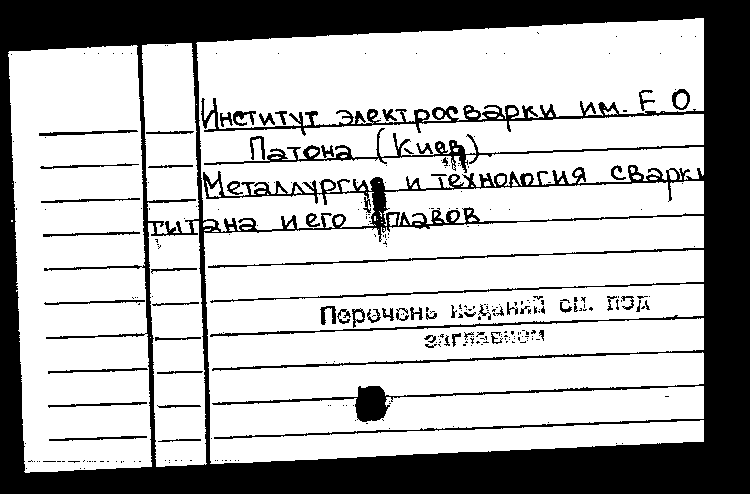 Институт электросварки им. Е О.
Патона (Киев).
Металлургия и технология сварки
титана и его сплавов
Перечень изданий см. под
заглавием